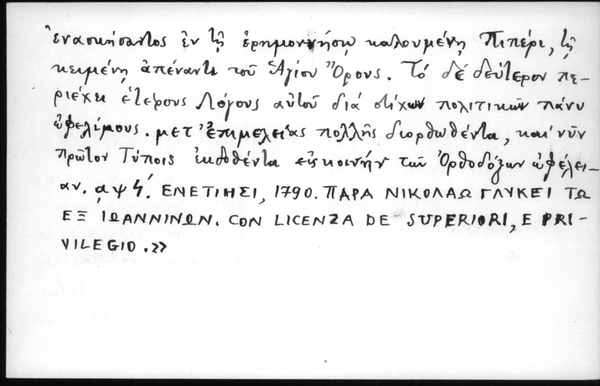 ἐνασκήσαντος ἐν τῇ ἐρημονήσῳ καλουμένῃ Πιπέρι, τῇ
κειμένῃ ἀπέναντι τοῦ Ἁγίου Ὄρους. Τό δέ δεύτερον πε-
ριέχει ἑτέρους Λόγους αὐτοῦ διά στίχων πολιτικῶν πάνυ
ὠφελίμους. μετ' ἐπιμελείας πολλῆς διορθωθέντα, καί νῦν
πρῶτον Τύποις ἐκδοθέντα εἰς κοινήν τῶν Ὀρθοδόξων ὠφέλει-
αν. ͵αψϟ΄. ΕΝΕΤΙΗΣΙ, 1790. ΠΑΡΑ ΝΙΚΟΛΑΩ ΓΛΥΚΕΙ ΤΩ
ΕΞ ΙΩΑΝΝΙΝΩΝ. CON LICENZA DE SUPERIORI, E PRI-
VILEGIO.»